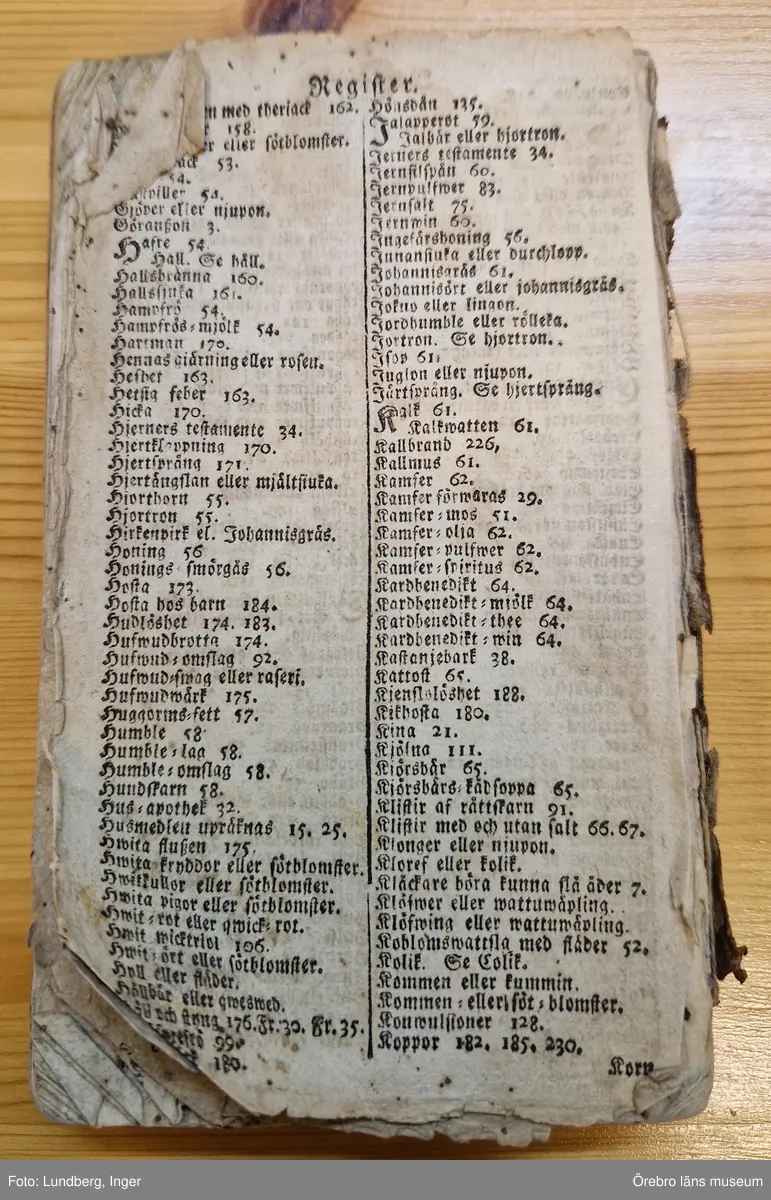 Register.
med theriack 162.
158.
eller sötblomster.
53.
54.
54.
Gjöper eller njupon.
Göranßon 3.
Hafre 54.
Hall. Se häll.
Hallsbränna 160.
Hallssjuka 161.
Hampfrö 54.
Hampfrös-mjölk 54.
Hartman 170.
Hennas giärning eller rosen.
Heshet 163.
Hetsig feber 163.
Hicka 170.
Hjerners testamente 34.
Hjertklappning 170.
Hjertspräng 171.
Hjertängslan eller mjältsiuka.
Hjorthorn 55.
Hjortron 55.
Hirkenpirk el. Johannisgräs.
Honing 56
Honings smörgås 56.
Hosta 173.
Hosta hos barn 184.
Hudlöshet 174. 183.
Hufwudbrotta 174.
Hufwud-omslag 92.
Hufwud-swag eller raseri.
Hufwudwärk 175.
Huggorms-fett 57.
Humble 58
Humble-lag 58.
Humble-omslag 58.
Hundskarn 58.
Hus-apothek 32.
Husmedlen upräknas 15. 25.
Hwita flußen 175.
Hwita kryddor eller sötblomster.
Hwitkullor eller sötblomster.
Hwita pigor eller sötblomster.
Hwit-rot eller qwick-rot.
Hwit wicktriol 106.
Hwit-ört eller sötblomster.
Hyll eller fläder.
Hållbär eller qweswed.
och styng 176. Fr. 30. Fr. 35.
99.
180.
Hönsdån 135.
Jalapperot 59.
Jalbär eller hjortron.
Jerners testamente 34.
Jernfilspån 60.
Jernpulfwer 83.
Jernsalt 75.
Jernwin 60.
Ingefärshoning 56.
Innansiuka eller durchlopp.
Johannisgräs 61.
Johannisört eller johannisgräs.
Jokno eller lingon.
Jordhumble eller rölleka.
Jortron. Se hjortron.
Isop 61.
Juglon eller njupon.
Järtspräng. Se hjertspräng.
Kalk 61.
Kalkwatten 61.
Kallbrand 226,
Kallmus 61.
Kamfer 62.
Kamfer förwaras 29.
Kamfer-mos 51.
Kamfer-olja 62.
Kamfer-pulfwer 62.
Kamfer-spiritus 62.
Kardbenedikt 64.
Kardbenedikt-mjölk 64.
Kardbenedikt-thee 64.
Kardbenedikt-win 64.
Kastanjebark 38.
Kattost 65.
Kjenslolöshet 188.
Kikhosta 180.
Kina 21.
Kjölna 111.
Kjörsbär 65.
Kjörsbärs-kådsoppa 65.
Klistir af råttskarn 91.
Klistir med och utan salt 66. 67.
Klonger eller njupon.
Kloref eller kolik.
Kläckare böra kunna slå åder 7.
Klöfwer eller wattuwäpling.
Klöfwing eller wattuwäpling.
Koblomswattsla med fläder 52.
Kolik. Se Colik.
Kommen eller kummin.
Kommen-eller söt-blomster.
Konwulsioner 128.
Koppor 182. 185. 230.
Korp
Foto: Lundberg, Inger
Örebro läns museum